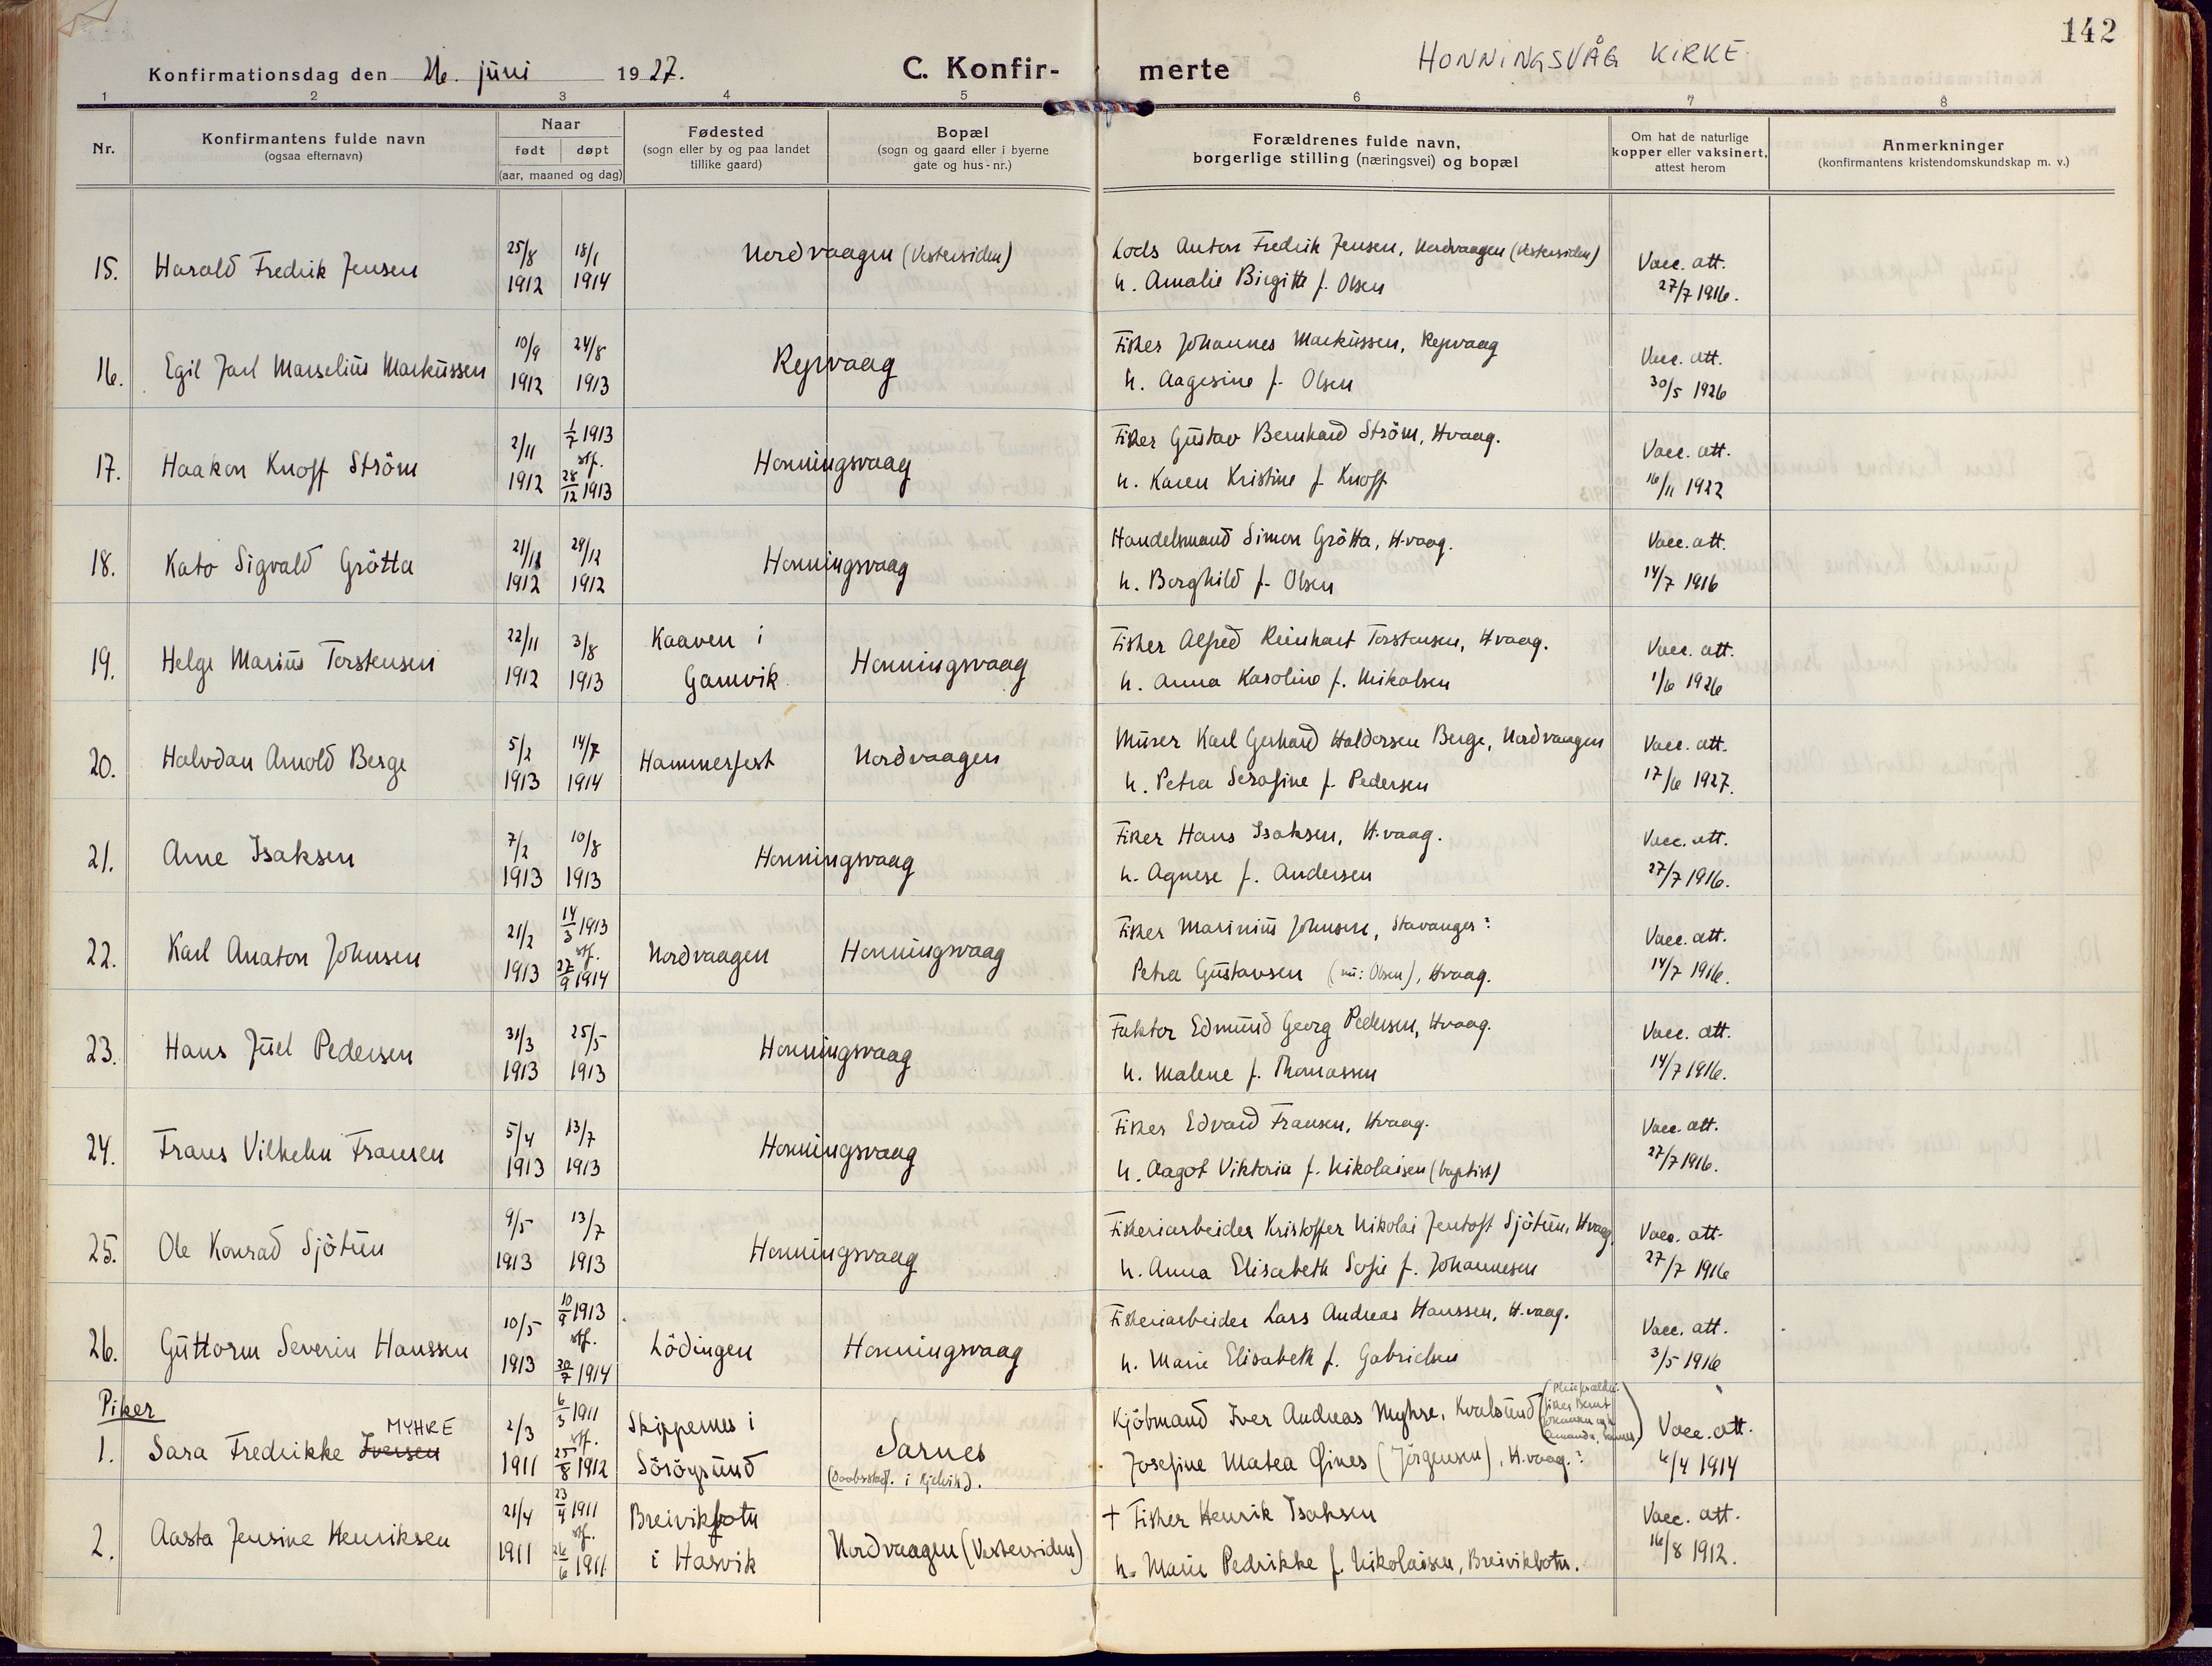 142
HONNINGSVÅG KIRKE
Konfirmationsdag den 26. juni 1927.
C. Konfir- merte
1 2 3 4 5 6 7 8
Nr.
Konfirmantens fulde navn
(ogsaa efternavn)
Naar
født døpt
(aar, maaned og dag)
Fødested
(sogn eller by og paa landet
tillike gaard)
Bopæl
(sogn og gaard eller i byerne
gate og hus-nr.)
Forældrenes fulde navn,
borgerlige stilling (næringsvei) og bopæl
Om hat de naturlige
kopper eller vaksinert,
attest herom
Anmerkninger
(konfirmantens kristendomskundskap m. v.)
25/8 18/1 Nordvaagen (Vestersiden) Lods Anton Fredrik Jensen, Nordvaagen (Vestersiden) Vacc. att.
15. Harald Fredrik Jensen 1912 1914 h. Amalie Birgitte f. Olsen 27/7 1916.
10/9 24/8 Repvaag Fisker Johannes Markussen, Repvaag Vacc. att.
16. Egil Jarl Marselius Markussen 1912 1913 h. Aagesine f. Olsen 30/5 1926
2/11 1/7 1913 stf. Honningsvaag Fisker Gustav Bernhard Ström, Hvaag. Vacc. att.
17. Haakon Knoff Ström 1912 28/12 1913 h. Karen Kristine f. Knoff 16/11 1922
21/11 29/12 Honningsvaag Handelsmand Simon Grötta, H.vaag. Vacc. att.
18. Kato Sigvald Grötta 1912 1912 h. Borghild f. Olsen 14/7 1916
22/11 3/8 Kaaven i Fisker Alfred Reinhart Torstensen, Hvaag. Vacc. att.
19. Helge Marius Torstensen 1912 1913 Gamvik Honningsvaag h. Anna Karoline f. Mikalsen 1/6 1926
5/2 14/7 Hammerfest Nordvaagen Murer Karl Gerhard Haldorsen Berge, Nordvaagen Vacc. att.
20. Halvdan Arnold Berge 1913 1914 h. Petra Serafine f. Pedersen 17/6 1927.
7/2 10/8 Honningsvaag Fisker Hans Isaksen, H.vaag. Vacc. att.
21. Arne Isaksen 1913 1913 h. Agnese f. Andersen 27/7 1916.
21/2 14/3 1913 stf. Nordvaagen Honningsvaag Fisker Marinius Johnsen, Stavanger? Vacc. att.
22. Karl Anaton Johnsen 1913 27/9 1914 Petra Gustavsen (nu: Olsen), Hvaag. 14/7 1916.
31/3 25/5 Honningsvaag Faktor Edmund Georg Pedersen, Hvaag. Vacc. att.
23. Hans Juel Pedersen 1913 1913 h. Malene f. Thomassen 14/7 1916.
5/4 13/7 Honningsvaag Fisker Edvard Fransen, Hvaag. Vacc. att.
24. Frans Vilhelm Fransen 1913 1913 h. Aagot Viktoria f. Nikolaisen (baptist) 27/7 1916.
9/5 13/7 Honningsvaag Fiskeriarbeider Kristoffer Nikolai Jentoft Sjötun, Hvaag. Vacc. att.
25. Ole Konrad Sjötun 1913 1913 h. Anna Elisabeth Sofie f. Johannesen 27/7 1916
10/5 10/9 1913 stf. Lödingen Honningsvaag Fiskeriarbeider Lars Andreas Hanssen, H.vaag. Vacc. att.
26. Guttorm Severin Hanssen 1913 30/7 1914 h. Marie Elisabeth f. Gabrielsen 3/5 1916
Piker
MYHRE 2/3 6/3 1911 stf. Skippernes i Sarnes Kjöbmand Iver Andreas Myhre, Kvalsund Vacc. att.
1. Sara Fredrikke Iversen 1911 25/8 1912 Söröysund (Daabsattest. i Kjelvik). Josefine Matea Gines (Jörgensen), H.vaag.? 4/4 1914
21/4 23/4 1911 stf. Breivikbotn † Fisker Henrik Isaksen Vacc. att.
2. Aasta Jensine Henriksen 1911 26/6 1911 i Hasvik Nordvaagen (Vestersiden) h. Marie Pedrikke f. Nikolaisen, Breivikbotn. 16/8 1912.